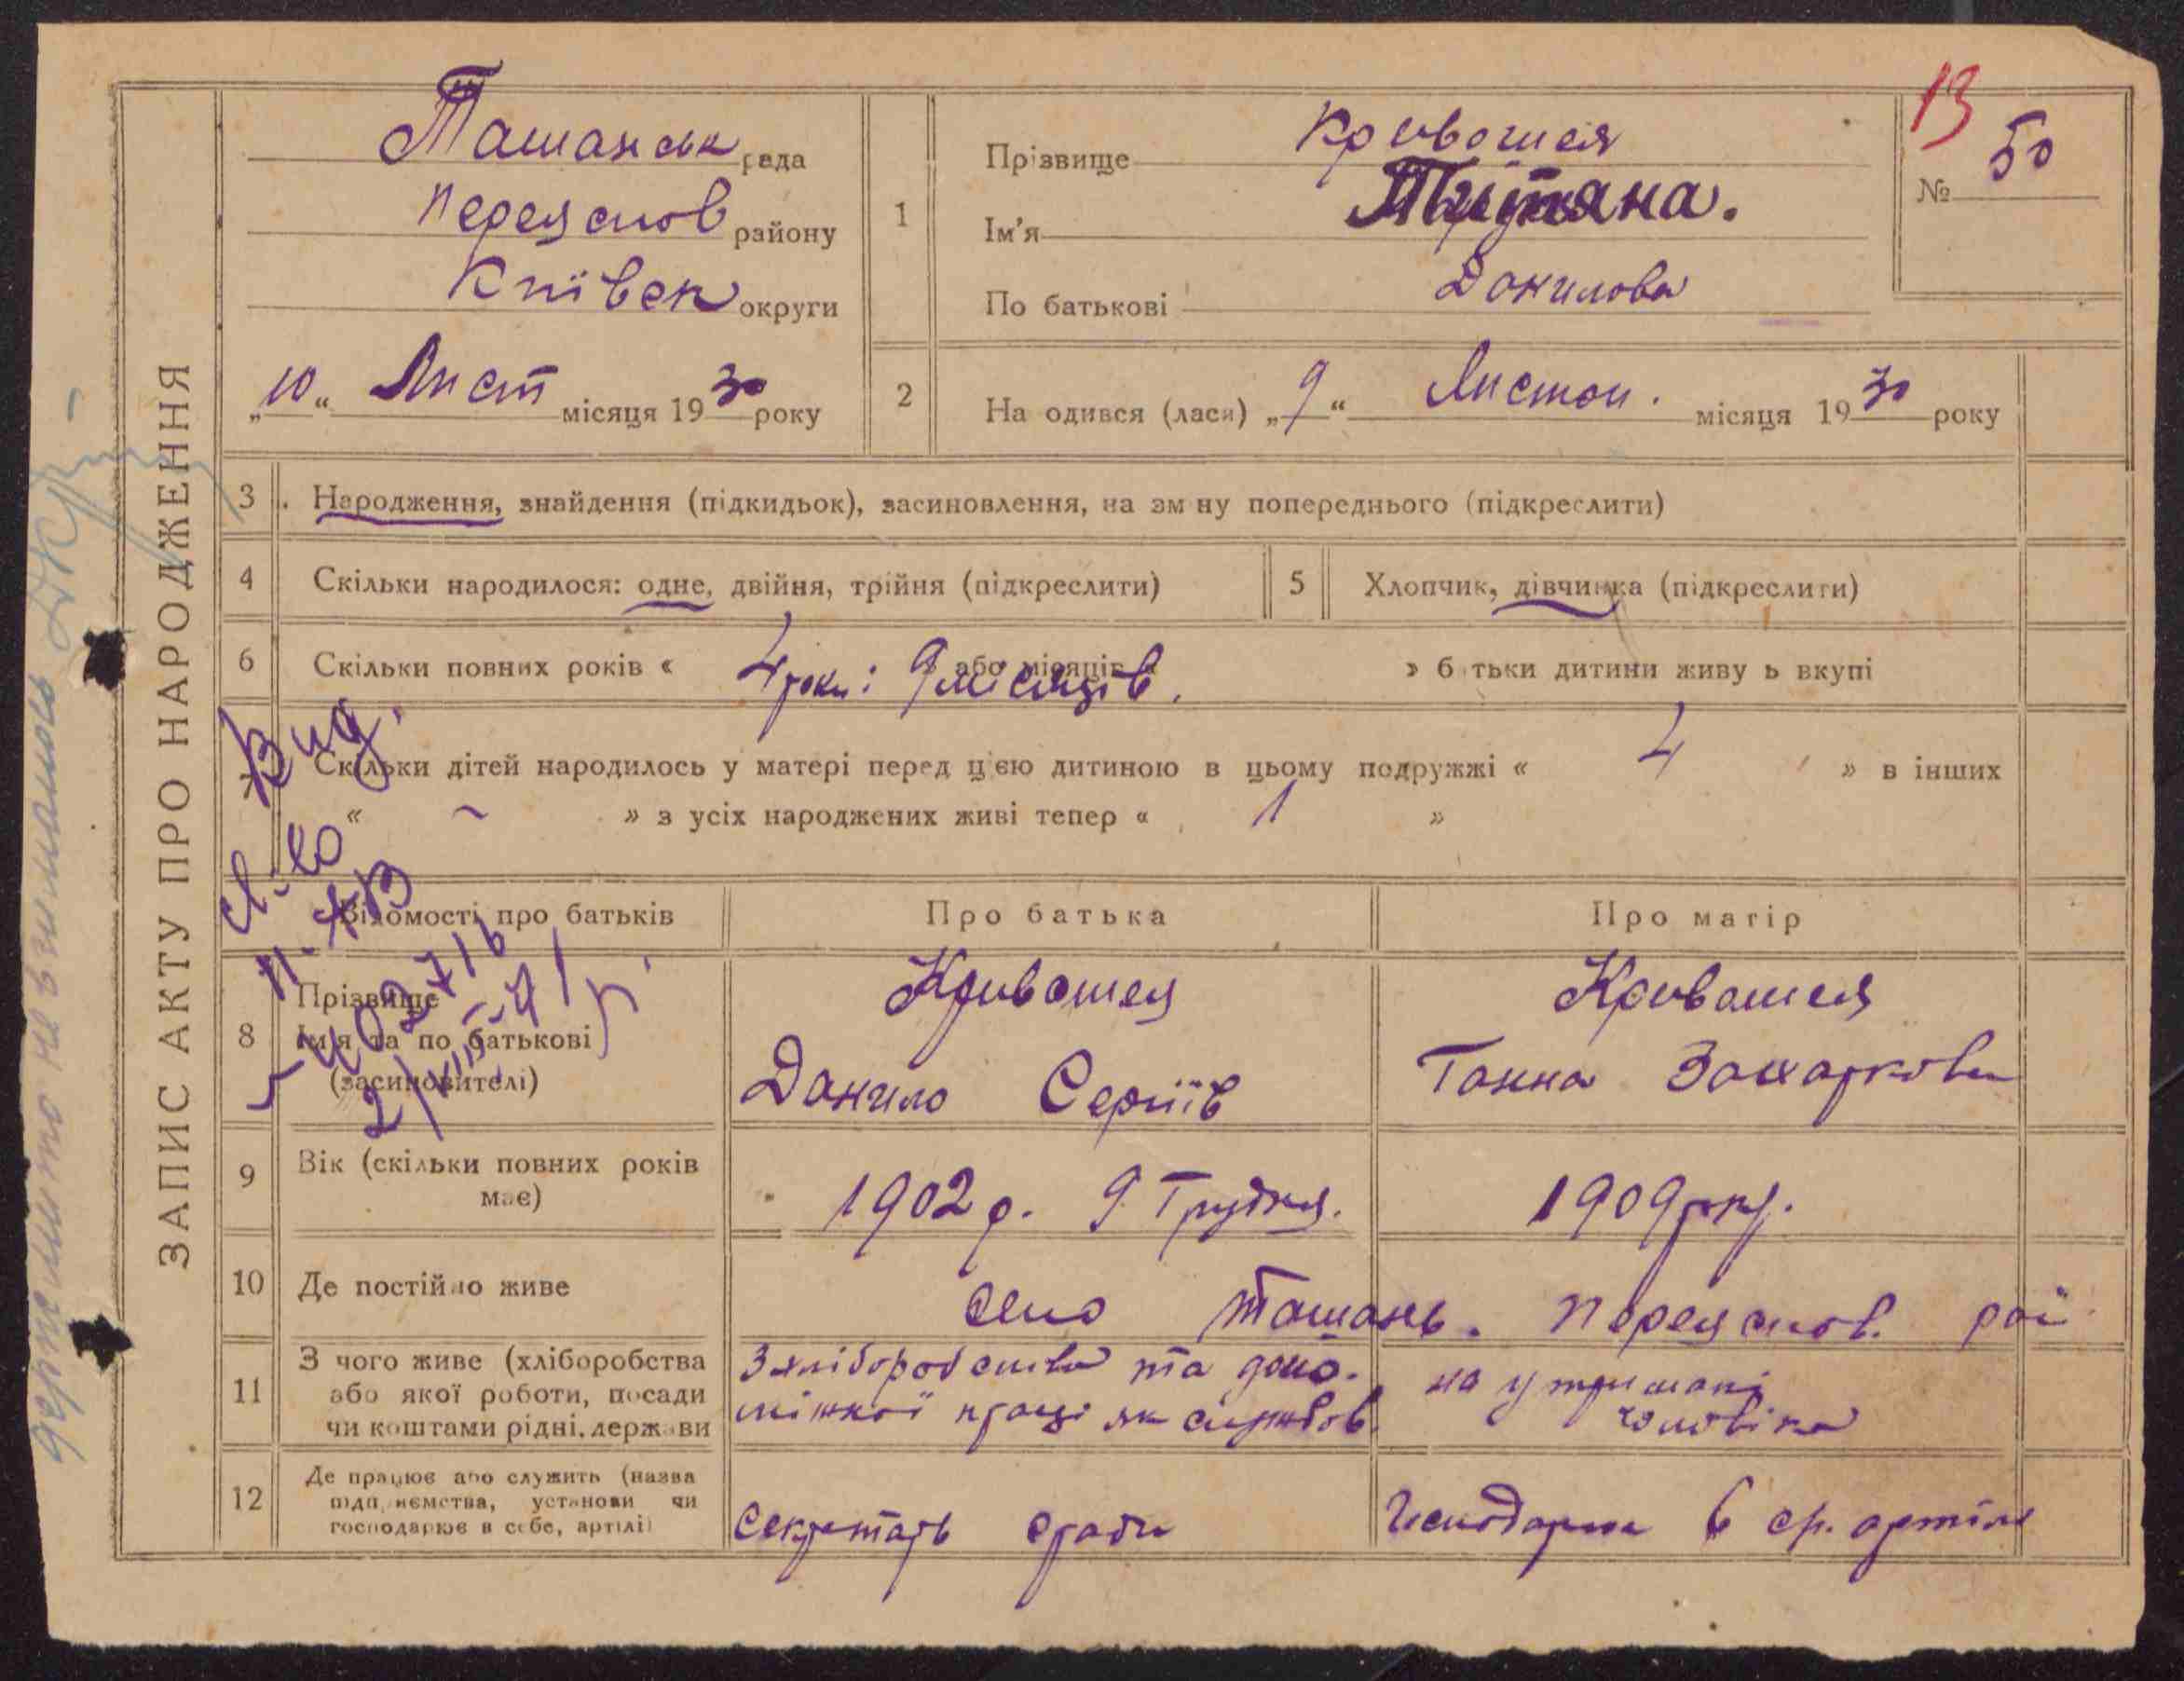 ЗАПИС АКТУ ПРО НАРОДЖЕННЯ
Ташанськ рада
Переяслов району
Київск округи
„10“ Лист місяця 1930 року
13
№ 50
1
Прізвище Кривошея
Ім'я Титяна.
По батькові Данилова
2
На одився (ласи) „9“ Листоп. місяця 1930 року
3. Народження, знайдення (підкидьок), засиновлення, на зм ну попереднього (підкреслити)
4 Скільки народилося: одне, двійня, трійня (підкреслити)
5 Хлопчик, дівчинка (підкреслити)
6 Скільки повних років « 4 роки і 9 місяців. » або місяців « » б тьки дитини живу ь вкупі
7 Скільки дітей народилось у матері перед цією дитиною в цьому подружжі « 4 » в інших
« – » з усіх народжених живі тепер « 1 »
Вид.
402716
2/VIII-41 р.
Відомості про батьків Про батька Про матір
8 Прізвище
Ім'я та по батькові
(засиновителі)
Кривошея
Данило Сергіїв
Кривошея
Ганна Захаркова
9 Вік (скільки повних років має)
1902 р. 9 Грудня.
1909 року.
10 Де постійно живе
село Ташань. Переяслов. рай
11 З чого живе (хліборобства
або якої роботи, посади
чи коштами рідні, держави
З хліборобства та допо-
міжної праці як службов.
на утримані
чоловіка
12 Де працює або служить (назва
підп иємства, установи чи
господарює в себе, артілі)
Секретарь с/ради
Господарює в с/г. артіли
не взималось